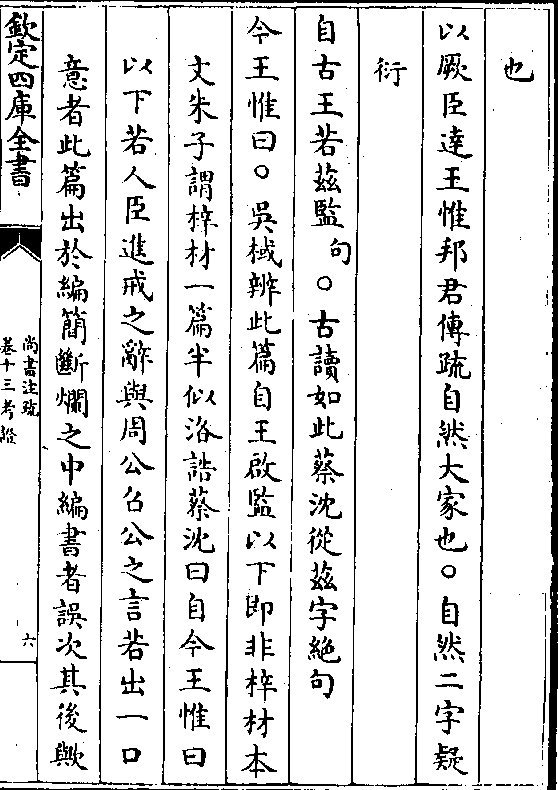 也
以厥臣達王惟邦君傳疏自然大家也○自然二字疑
衍
自古王若茲監句○古讀如此蔡沈從茲字絶句
今王惟曰○吳棫辨此篇自王啟監以下即非梓材本
文朱子謂梓材一篇半似洛誥蔡沈曰自今王惟曰
以下若人臣進戒之辭與周公召公之言若出一口
意者此篇出於編簡斷爛之中編書者誤次其後歟
欽定四庫全書
尚書注疏
卷十三考證
六